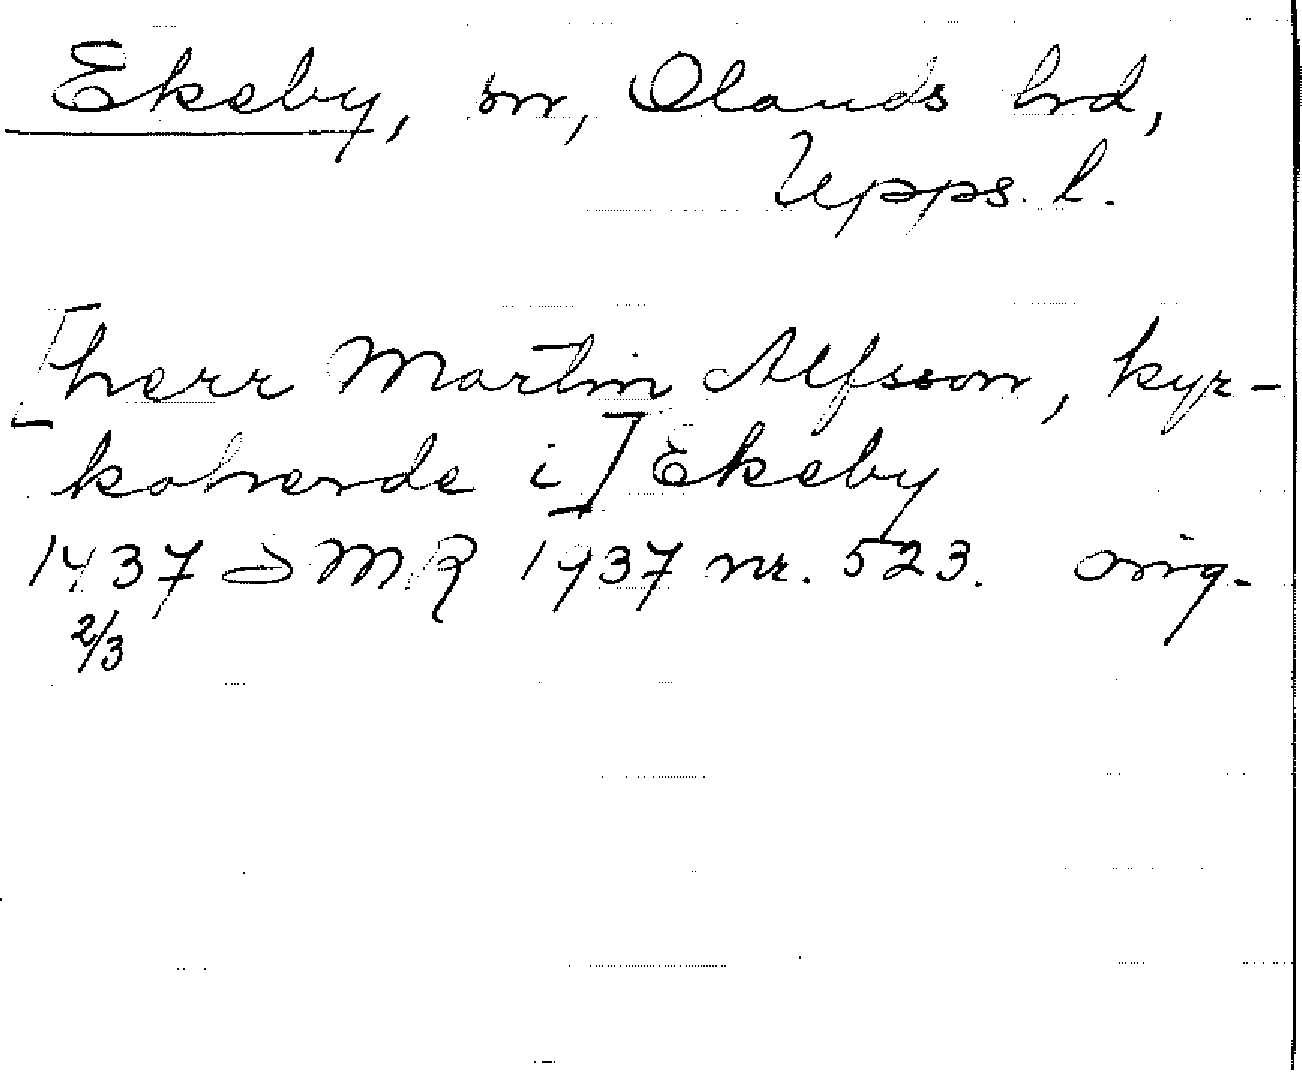 Ekeby, sn, Olands hrd,
Upps. l.
[herr Martin Alfsson, kyr-
koherde i] Ekeby
1437 SMR 1437 nr. 523. orig.
2/3